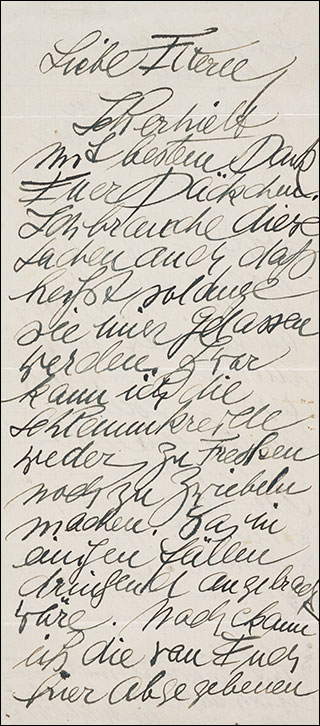 Liebe Eltern
Ich erhielt
mit bestem Dank
Euer Päckchen.
Ich brauche diese
Sachen auch das
heißt solange
sie mir gelassen
werden. Zwar
kann ich die
Schlemmkreide
weder zu Fresken
noch zu Zwiebeln
machen. Das in
Fällen
dringend angebracht
wäre. Noch kann
ich die von Euch
hier abgegebenen